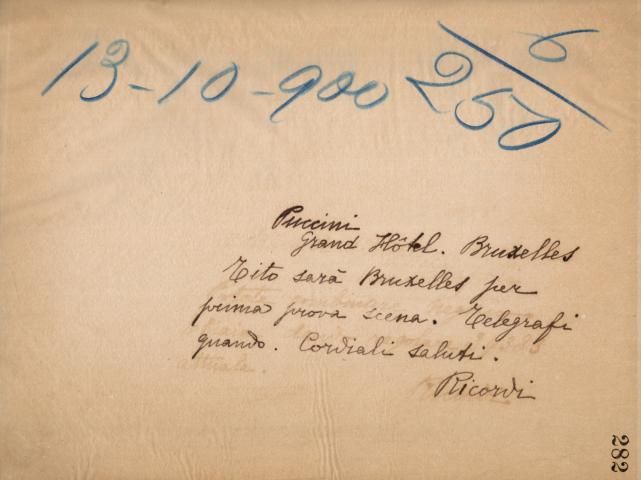 13-10-900 6
250
Puccini
Grand Hôtel. Bruxelles
Tito sarà Bruxelles per
prima prova scena. Telegrafi
quando. Cordiali saluti.
Ricordi
282